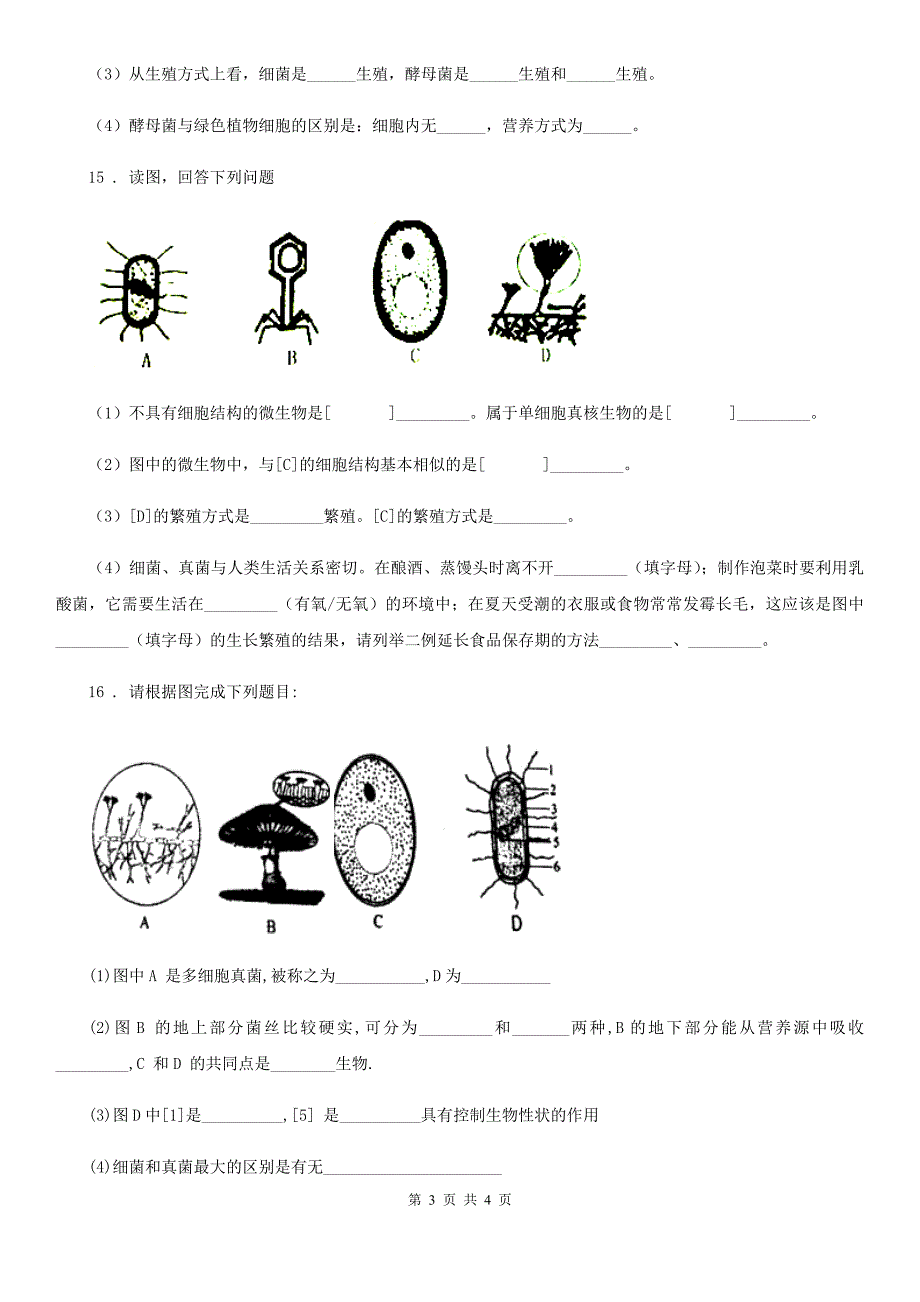 （3）从生殖方式上看，细菌是______生殖，酵母菌是______生殖和______生殖。
（4）酵母菌与绿色植物细胞的区别是：细胞内无______，营养方式为______。
15 ． 读图，回答下列问题
A B C D
（1）不具有细胞结构的微生物是[ ]_________。属于单细胞真核生物的是[ ]_________。
（2）图中的微生物中，与[C]的细胞结构基本相似的是[ ]_________。
（3）[D]的繁殖方式是_________繁殖。[C]的繁殖方式是_________。
（4）细菌、真菌与人类生活关系密切。在酿酒、蒸馒头时离不开_________（填字母）；制作泡菜时要利用乳
酸菌，它需要生活在_________（有氧/无氧）的环境中；在夏天受潮的衣服或食物常常发霉长毛，这应该是图中
_________（填字母）的生长繁殖的结果，请列举二例延长食品保存期的方法_________、_________。
16 ． 请根据图完成下列题目:
1
2
3
4
5
6
A B C D
(1)图中A 是多细胞真菌,被称之为___________,D为___________
(2)图B 的地上部分菌丝比较硬实,可分为_________和_______两种,B的地下部分能从营养源中吸收
_________,C 和D 的共同点是________生物.
(3)图D中[1]是__________,[5] 是__________具有控制生物性状的作用
(4)细菌和真菌最大的区别是有无______________________
第 3 页 共 4 页